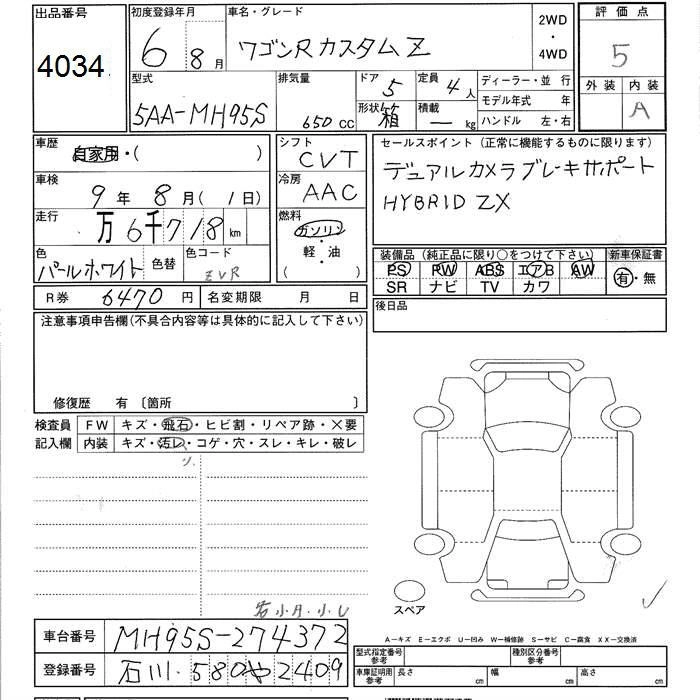 出品番号
4034
初度登録年月
6 8月
車名・グレード
ワゴンRカスタムZ
2WD
・
4WD
評価点
5
外装 内装
A
型式
5AA-MH95S
排気量
650 cc
ドア
5
形状
箱
定員
4人
積載
— kg
ディーラー・並 行
モデル年式 年
ハンドル 左・右
車歴
自家用・( )
車検
9年 8月( 1日)
走行
万6千718km
色
パールホワイト
色替
色コード
ZVR
シフト
CVT
冷房
AAC
燃料
ガソリン
・
軽・油
( )
セールスポイント (正常に機能するものに限ります)
デュアルカメラブレーキサポート
HYBRID ZX
装備品 (純正品に限り○をつけて下さい)
PS PW ABS エアB AW
SR ナビ TV カワ
新車保証書
有・無
R券 6470円
名変期限 月 日
後日品
注意事項申告欄(不具合内容等は具体的に記入して下さい)
修復歴 有 〔箇所 〕
検査員
記入欄
FW キズ・飛石・ヒビ割・リペア跡・×要
内装 キズ・汚レ・コゲ・穴・スレ・キレ・破レ
スペア
車台番号 MH95S-274372
登録番号 石川 580 や 2409
A-キズ E-エクボ U-凹み W-補修跡 S-サビ C-腐食 XX-交換済
型式指定番号
参考
種別区分番号
参考
車庫証明用
参考
長さ cm
幅 cm
高さ cm